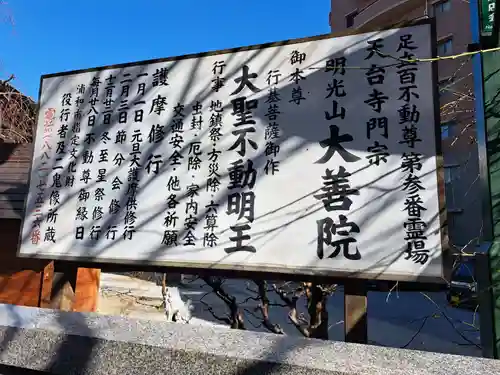 足立百不動尊 第参番霊場
天台寺門宗
明光山 大善院
御本尊
行基菩薩御作
大聖不動明王
行事
地鎮祭・方災除・六算除
虫封・厄除・家内安全
交通安全・他各祈願
護摩修行
一月一日 元旦大護摩供修行
二月三日 節分会修行
十二月廿二日 冬至星祭修行
毎月廿八日 不動尊御縁日
浦和市指定文化財
役行者及二鬼像所蔵